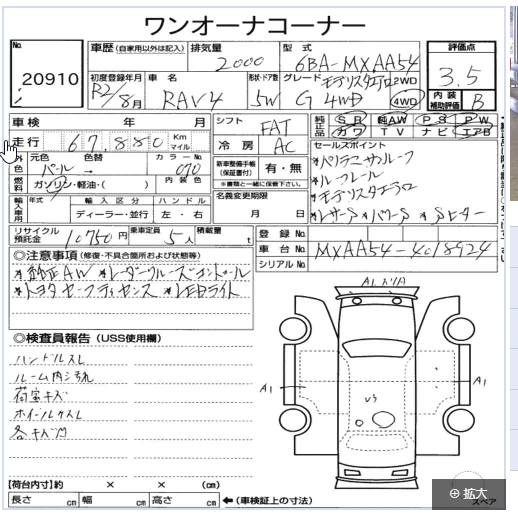 ワンオーナコーナー
No. 20910
車歴 (自家用以外は記入)
排気量 2000
型式 6BA-MXAA54
評価点 3.5
初度登録年月 R2/8月
車名 RAV4
形状・ドア数 5W
グレード モデリスタエアロ
G 4WD
2WD
4WD
内装補助評価 B
車検 年 月
シフト FAT
純正品 SR 純AW PS PW
カワ TV ナビ エアB
走行 67,880 Km マイル
冷房 AC
セールスポイント
外色 元色 色替 カラーNo.
パール → 070
*パノラマサンルーフ
*ルーフレール
*モデリスタエアロ
*レザーS *パワーS *Sヒーター
燃料 ガソリン・軽油・( ) 内装色
新車整備手帳 (保証書付) 有・無
※書類と一緒に保管下さい。
輸入車用 年式 輸入区分 ハンドル
ディーラー・並行 左・右
名義変更期限
月 日
リサイクル預託金 10750円
乗車定員 5人
積載量 t
登録No.
車台No. MXAA54-4018924
シリアルNo.
◎注意事項 (修復・不具合箇所および状態等)
*純正AW *レーダークルーズコントロール
*トヨタセーフティセンス *LEDライト
◎検査員報告 (USS使用欄)
ハンドルスレ
ルーム内汚れ
荷室キズ
ホイールケスレ
各キズ凹
A1
A1
A1
【荷台内寸】約 × × (cm)
長さ cm 幅 cm 高さ cm ←(車検証上の寸法)
スペア
拡大